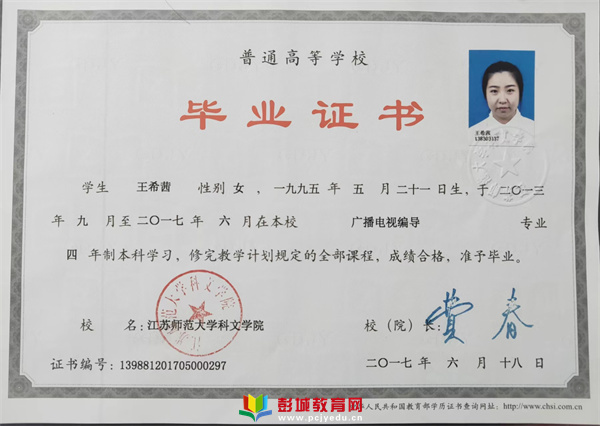 普通高等学校
毕业证书
王希茜
学生 王希茜 性别 女 ，一九九五 年 五 月 二十一日生，于 二〇一三
年 九 月至 二〇一七 年 六 月在本校 广播电视编导 专业
四 年制本科学习，修完教学计划规定的全部课程，成绩合格，准予毕业。
江苏师范大学科文学院
校 名：江苏师范大学科文学院 校（院）长：费春
证书编号：139881201705000297 二〇一七 年 六 月 十八 日
彭城教育网
www.pcjyedu.cn
人民共和国教育部学历证书查询网址：http://www.chsi.com.cn